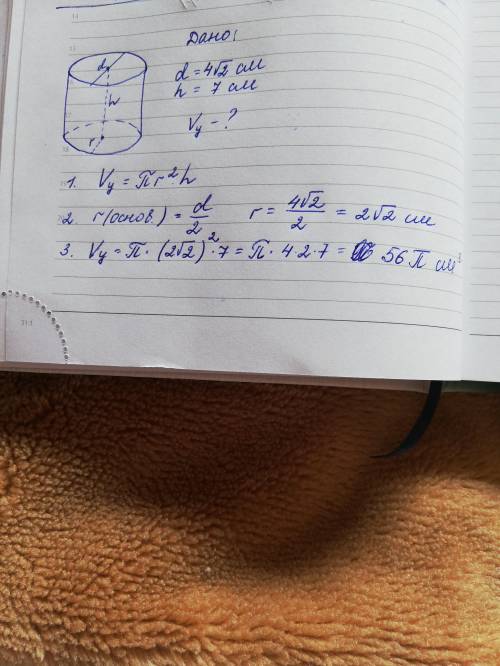 Дано:
d = 4√2 см
h = 7 см
Vу - ?
d
h
r
1. Vу = πr²·h
2. r(основ.) = d/2 r = 4√2/2 = 2√2 см
3. Vу = π·(2√2)²·7 = π·4·2·7 = 56π см³